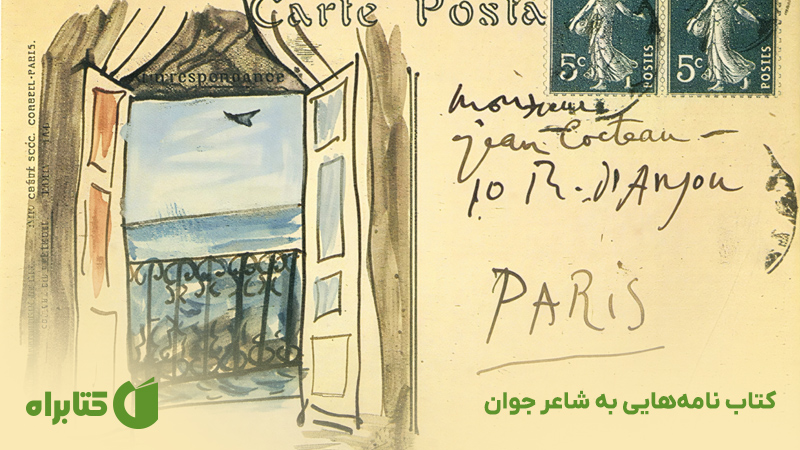 Carte Posta
Correspondance
5c
POSTES
5c
POSTES
Monsieur
Jean Cocteau –
10 R. d'Anjou
PARIS
کتاب نامه‌هایی به شاعر جوان
کتابراه